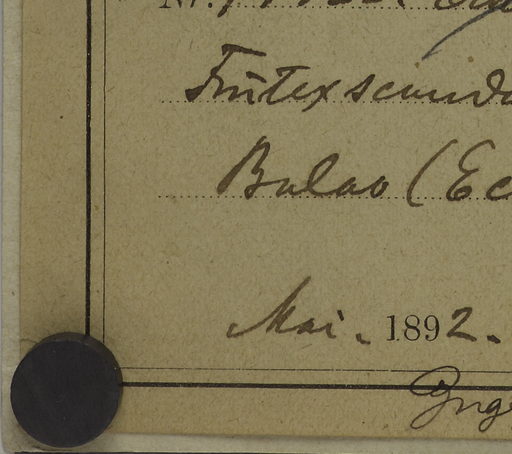 Frutex scand
Balao (Ec
Mai. 1892.